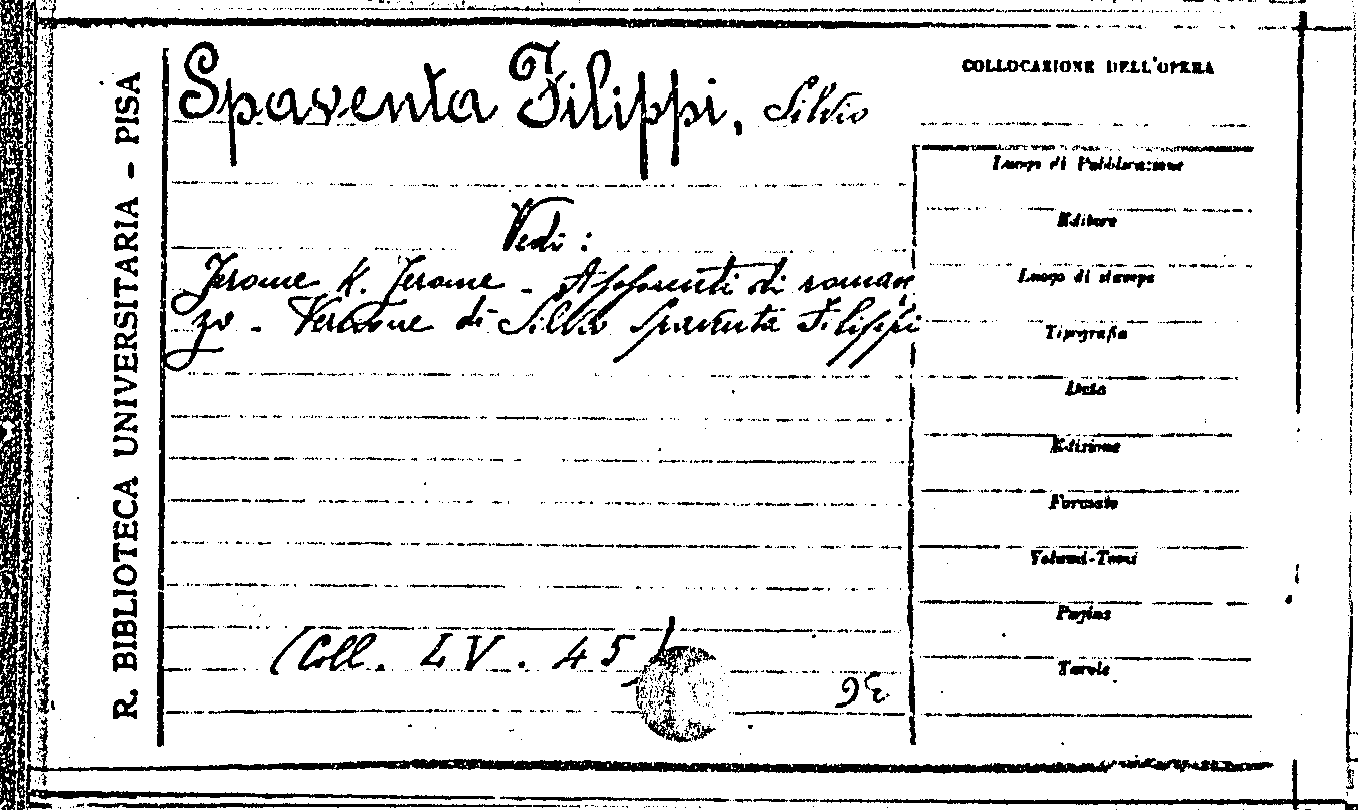 R. BIBLIOTECA UNIVERSITARIA - PISA
Spaventa Filippi, Silvio
Vedi:
Jerome K. Jerome - Appunti di roman
zo - Versione di Silvio Spaventa Filippi
(Coll. LV. 45)
COLLOCAZIONE DELL'OPERA
Luogo di Pubblicazione
Editore
Luogo di stampa
Tipografia
Data
Edizione
Formato
Volumi-Tomi
Pagine
Tavole